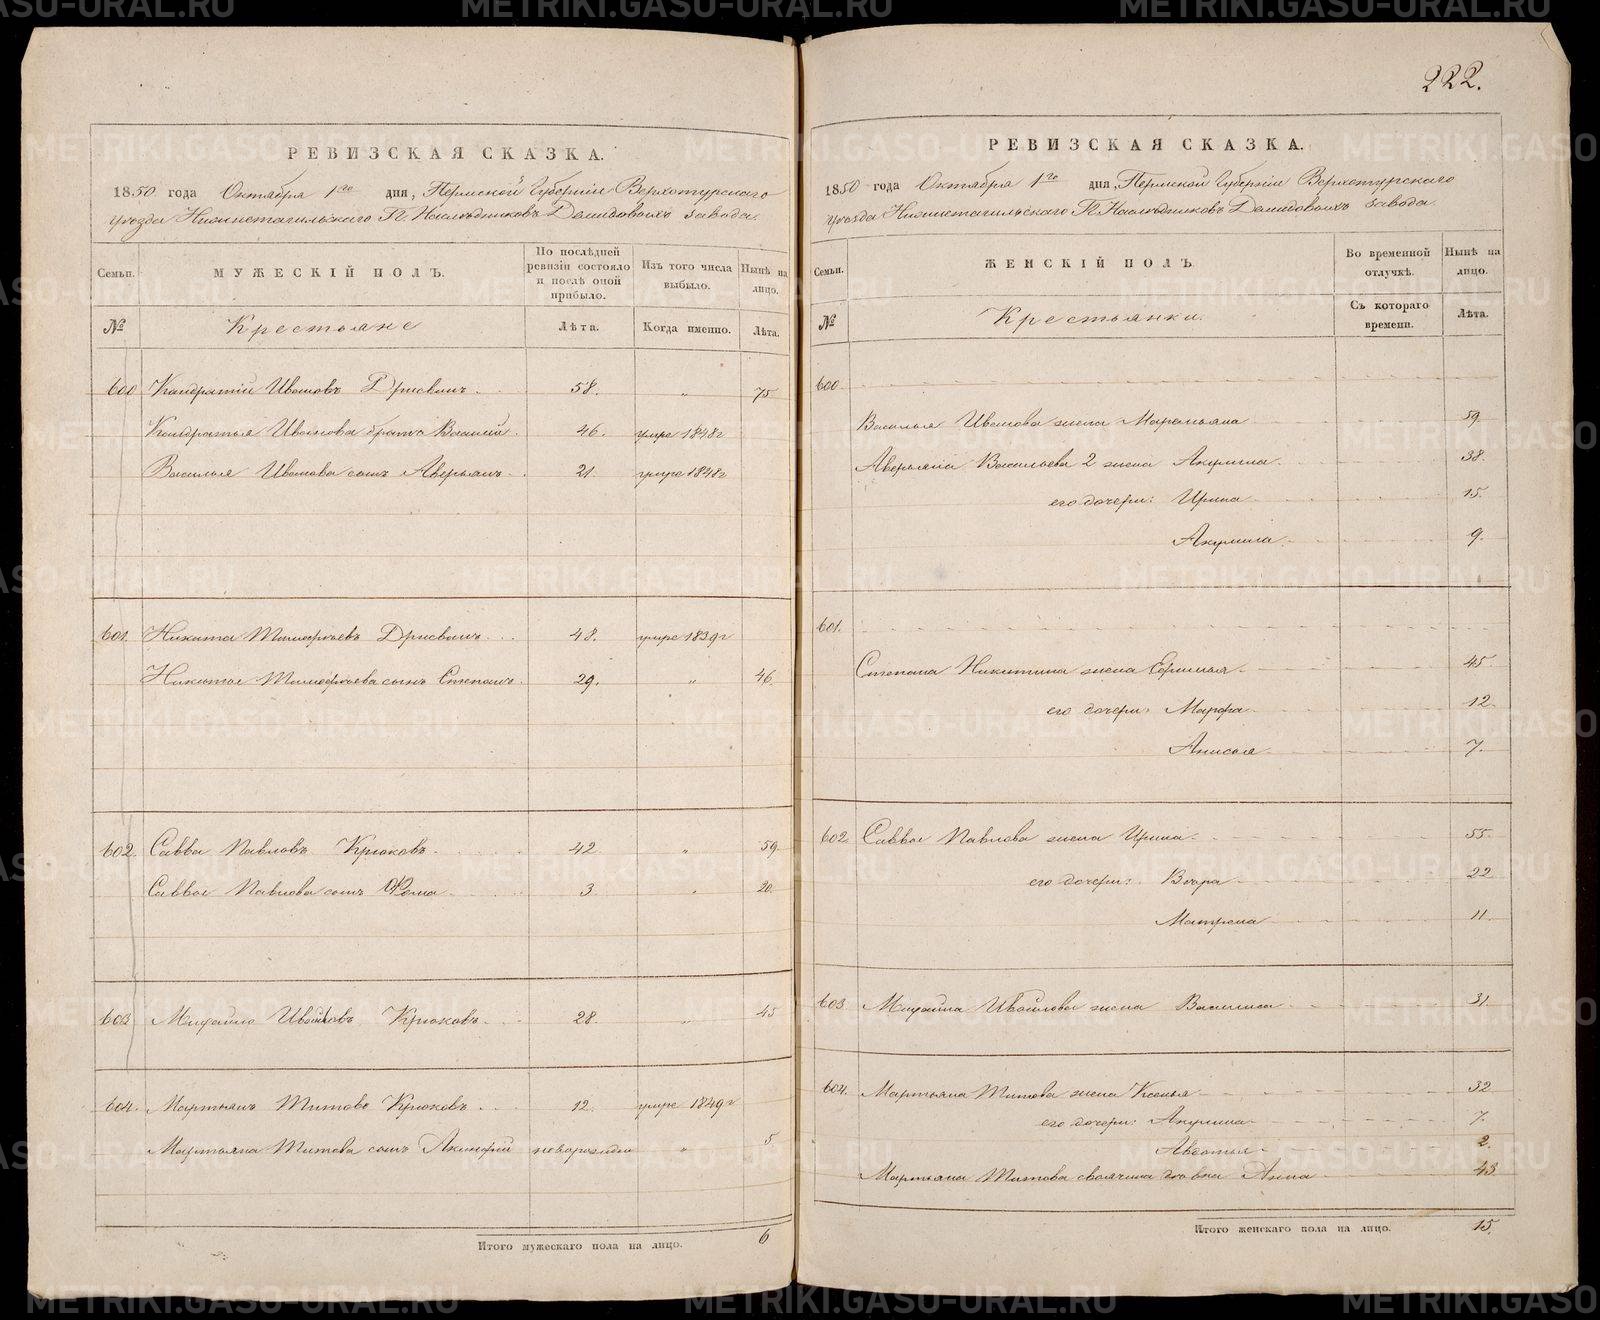 222.
РЕВИЗСКАЯ СКАЗКА.
1850 года Октября 1го дня, Пермской Губерніи Верхотурскаго
уѣзда Нижнетагильскаго Г.г. Наслѣдниковъ Демидовыхъ завода.
Семьи.
МУЖЕСКІЙ ПОЛЪ.
По послѣдней ревизіи состояло и послѣ оной прибыло.
Изъ того числа выбыло.
Нынѣ на лицо.
№
Крестьяне
Лѣта.
Когда именно.
Лѣта.
600 Кондратій Ивановъ 58. " 75
Кондратья Иванова братъ Василій 46. умре 1848г
Василья Иванова сынъ Аверьянъ 21. умре 1848г
601. Никита Тимофѣевъ 48. умре 1839г
Никиты Тимофѣева сынъ Степанъ 29. " 46.
602. Савва Павловъ Крюковъ 42 " 59
Саввы Павлова сынъ Фома 3 " 20.
603 Михайло Крюковъ 28. " 45
604. Мартьянъ Титовъ Крюковъ 12. умре 1849г
Мартьяна Титова сынъ Акинфій новорожден " 5
Итого мужескаго пола на лицо. 6
РЕВИЗСКАЯ СКАЗКА.
1850 года Октября 1го дня, Пермской Губерніи Верхотурскаго
уѣзда Нижнетагильскаго Г.г. Наслѣдниковъ Демидовыхъ завода.
Семьи.
ЖЕНСКІЙ ПОЛЪ
Во временной отлучкѣ.
Нынѣ на лицо.
№
Крестьянки.
Съ котораго времени.
Лѣта.
600
Василья Иванова жена Маремьяна 59
Аверьяна Васильева 2 жена Акулина 38.
его дочери: Ирина 15.
Акулина 9.
601.
Степана Никитина жена 45
его дочери: Марфа 12
Анисья 7.
602. Саввы Павлова жена Ирина 55
его дочери: 22
Матрена 11
603 Михайла жена Василиса 31.
604. Мартьяна Титова жена Ксенья 32
его дочери: Акулина 7.
Авдотья 2.
Мартьяна Титова Анна 43
Итого женскаго пола на лицо. 15.
METRIKI.GASO-URAL.RU